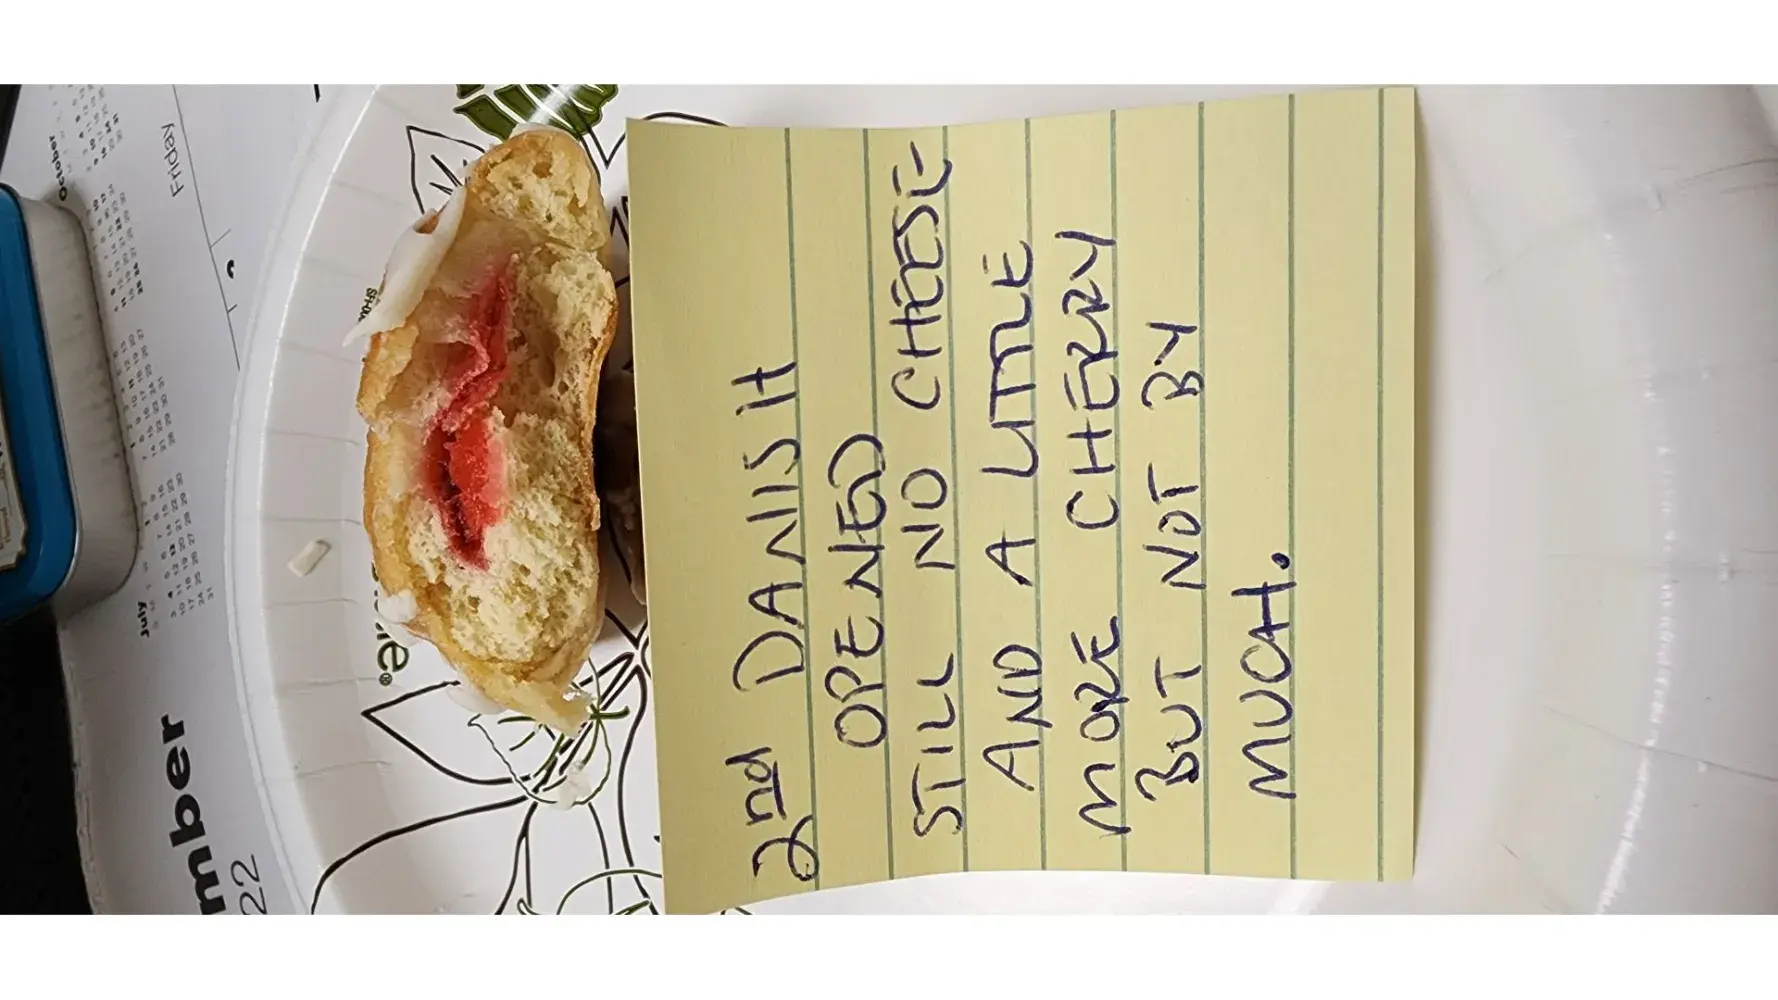 2nd DANISH
OPENED
STILL NO CHEESE
AND A LITTLE
MORE CHERRY
BUT NOT BY
MUCH.
mber
22
Friday
October
July